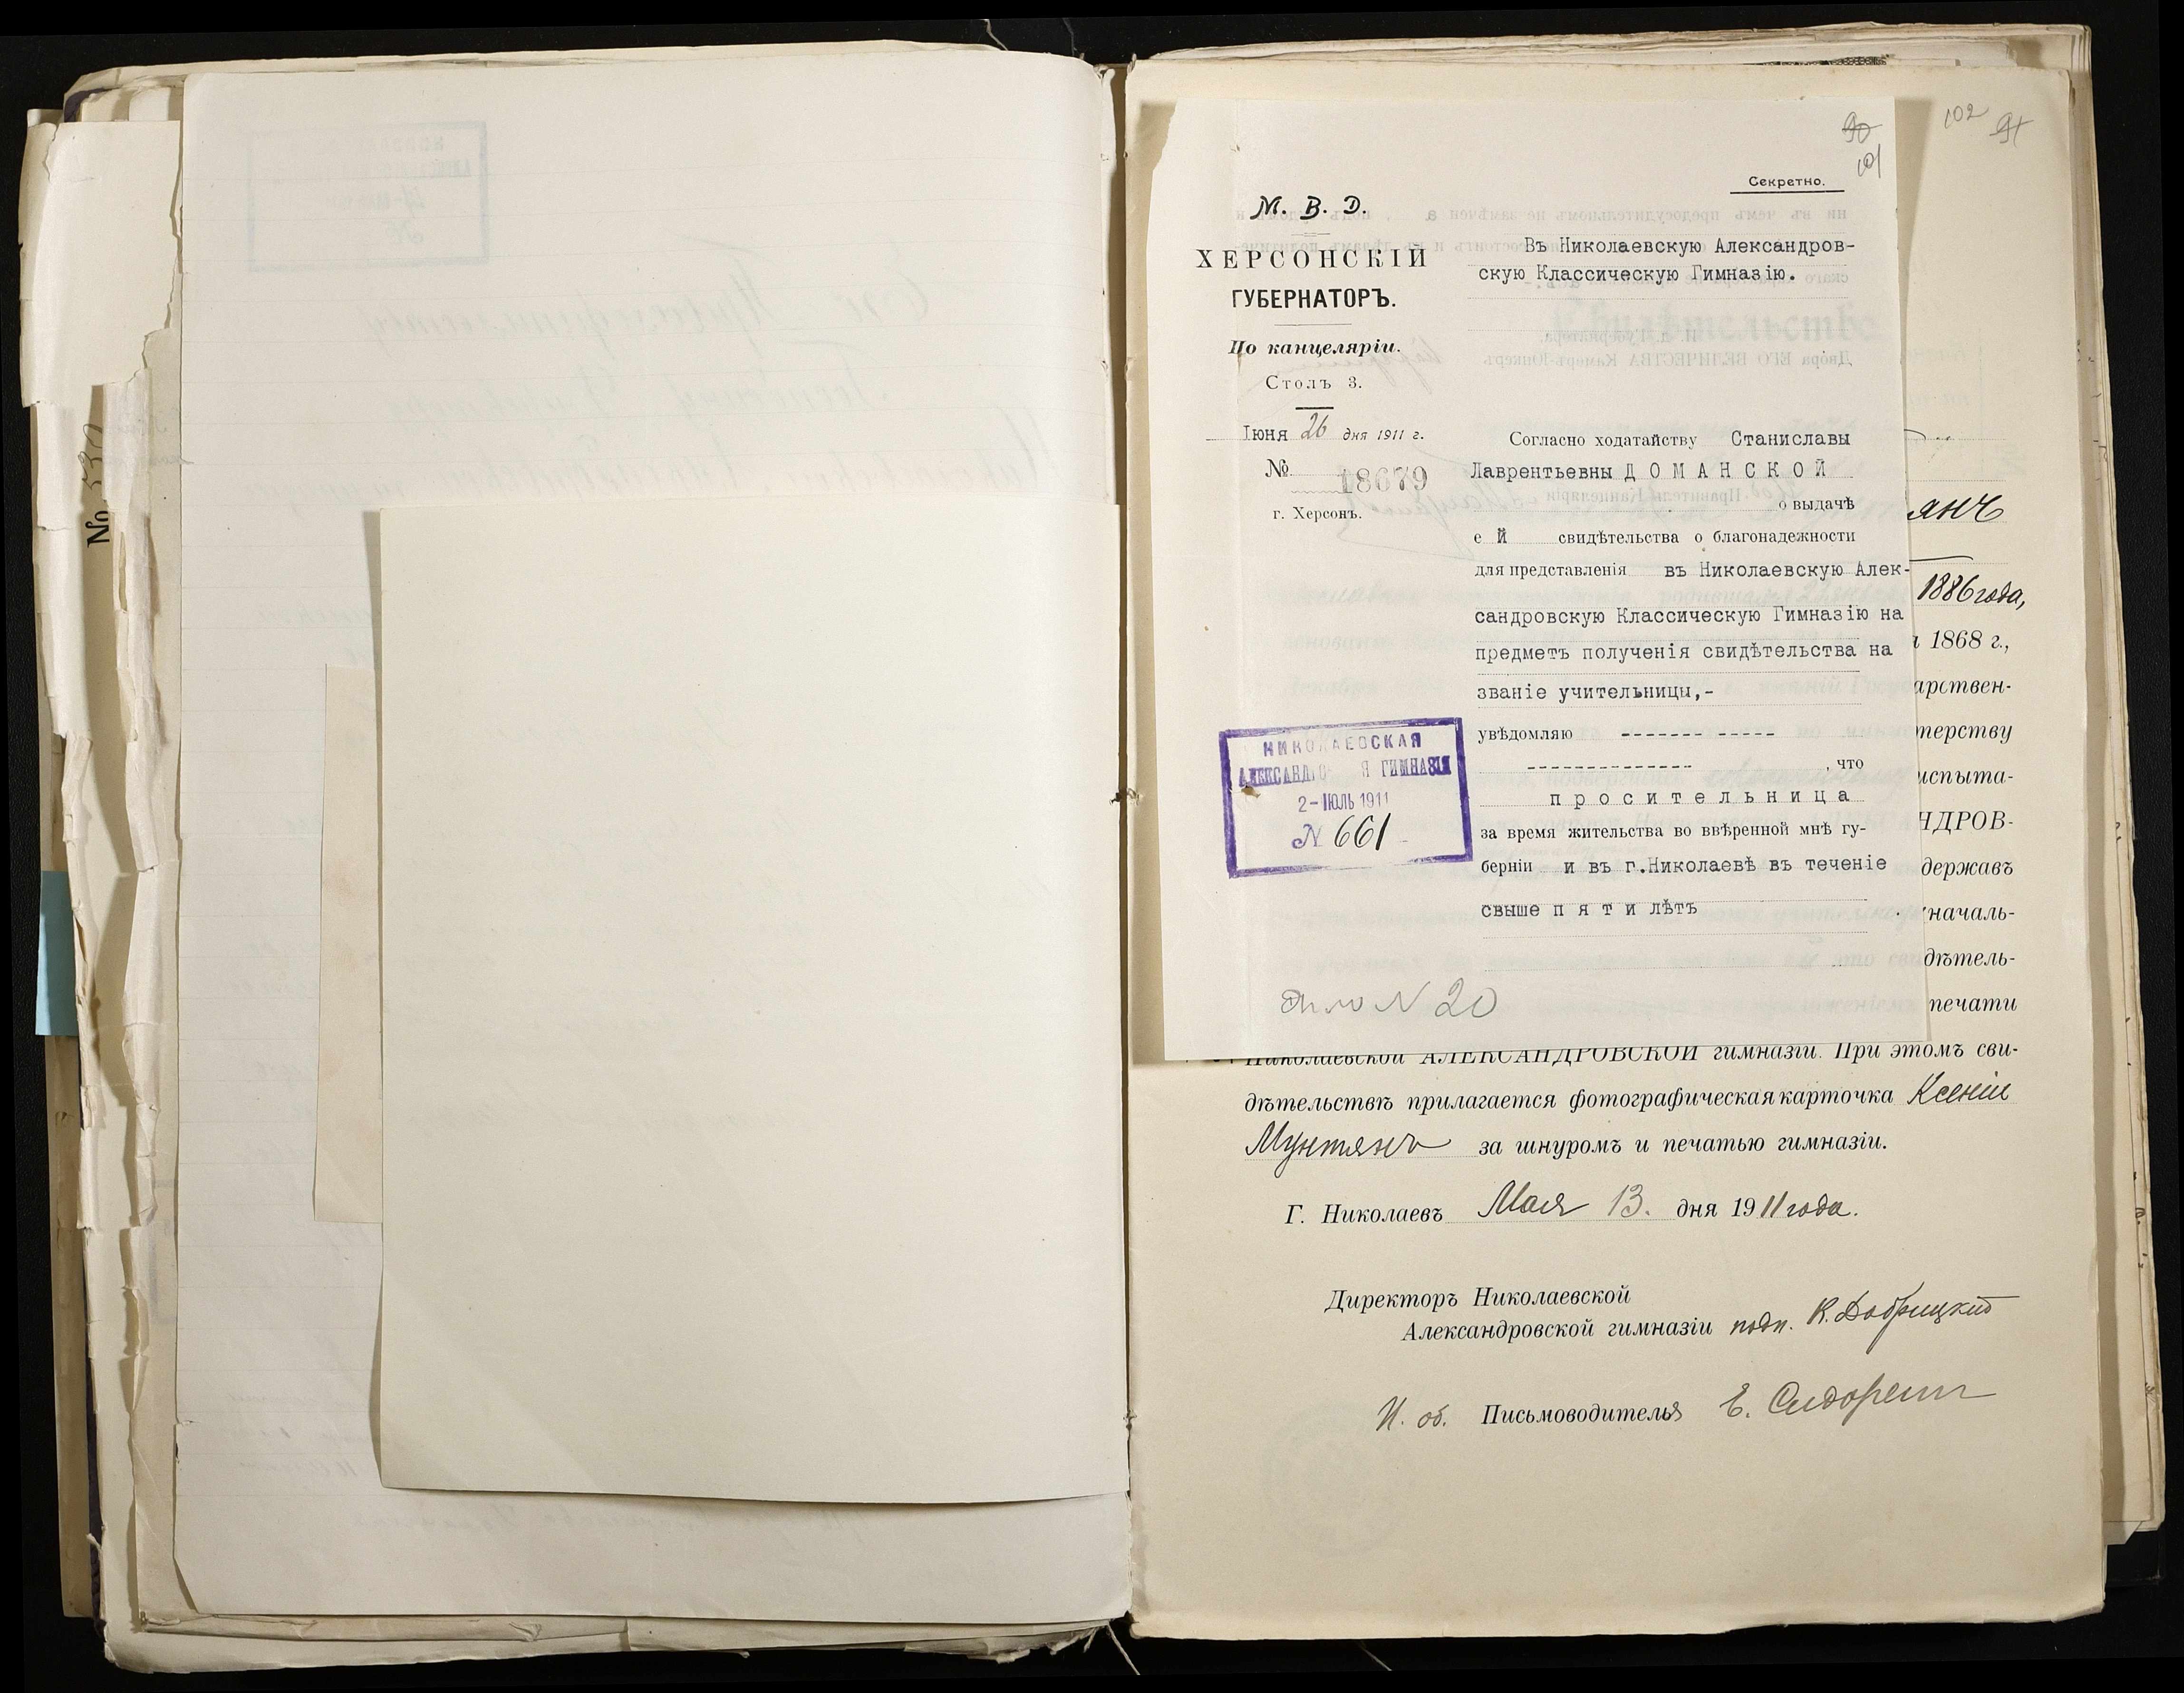 № 530
90
101
102
91
Секретно.
М. В. Д.
ХЕРСОНСКІЙ
ГУБЕРНАТОРЪ.
По канцеляріи.
Столъ 3.
Іюня 26 дня 1911 г.
№ 18679
г. Херсонъ.
Въ Николаевскую Александров-
скую Классическую Гимназію.
Согласно ходатайству Станиславы
Лаврентьевны ДОМАНСКОЙ
о выдачѣ
ей свидѣтельства о благонадежности
для представленія въ Николаевскую Алек-
сандровскую Классическую Гимназію на
предметъ полученія свидѣтельства на
званіе учительницы,-
увѣдомляю ------------
--------------, что
просительница
за время жительства во ввѣренной мнѣ гу-
берніи и въ г.Николаевѣ въ теченіе
свыше пяти лѣтъ
НИКОЛАЕВСКАЯ
АЛЕКСАНДРО Я ГИМНАЗІЯ
2-ІЮЛЬ 1911
№ 661
N 20
янъ
1886 года,
а 1868 г.,
арствен-
терству
испыта-
НДРОВ-
державъ
началь-
дѣтель-
печати
Николаевской АЛЕКСАНДРОВСКОЙ гимназіи. При этомъ сви-
дѣтельствѣ прилагается фотографическая карточка Ксеніи
Мунтянъ за шнуромъ и печатью гимназіи.
Г. Николаевъ Мая 13. дня 1911 года.
Директоръ Николаевской
Александровской гимназіи подп. К. Добрицкій
И. об. Письмоводителя Е. Сидоренко